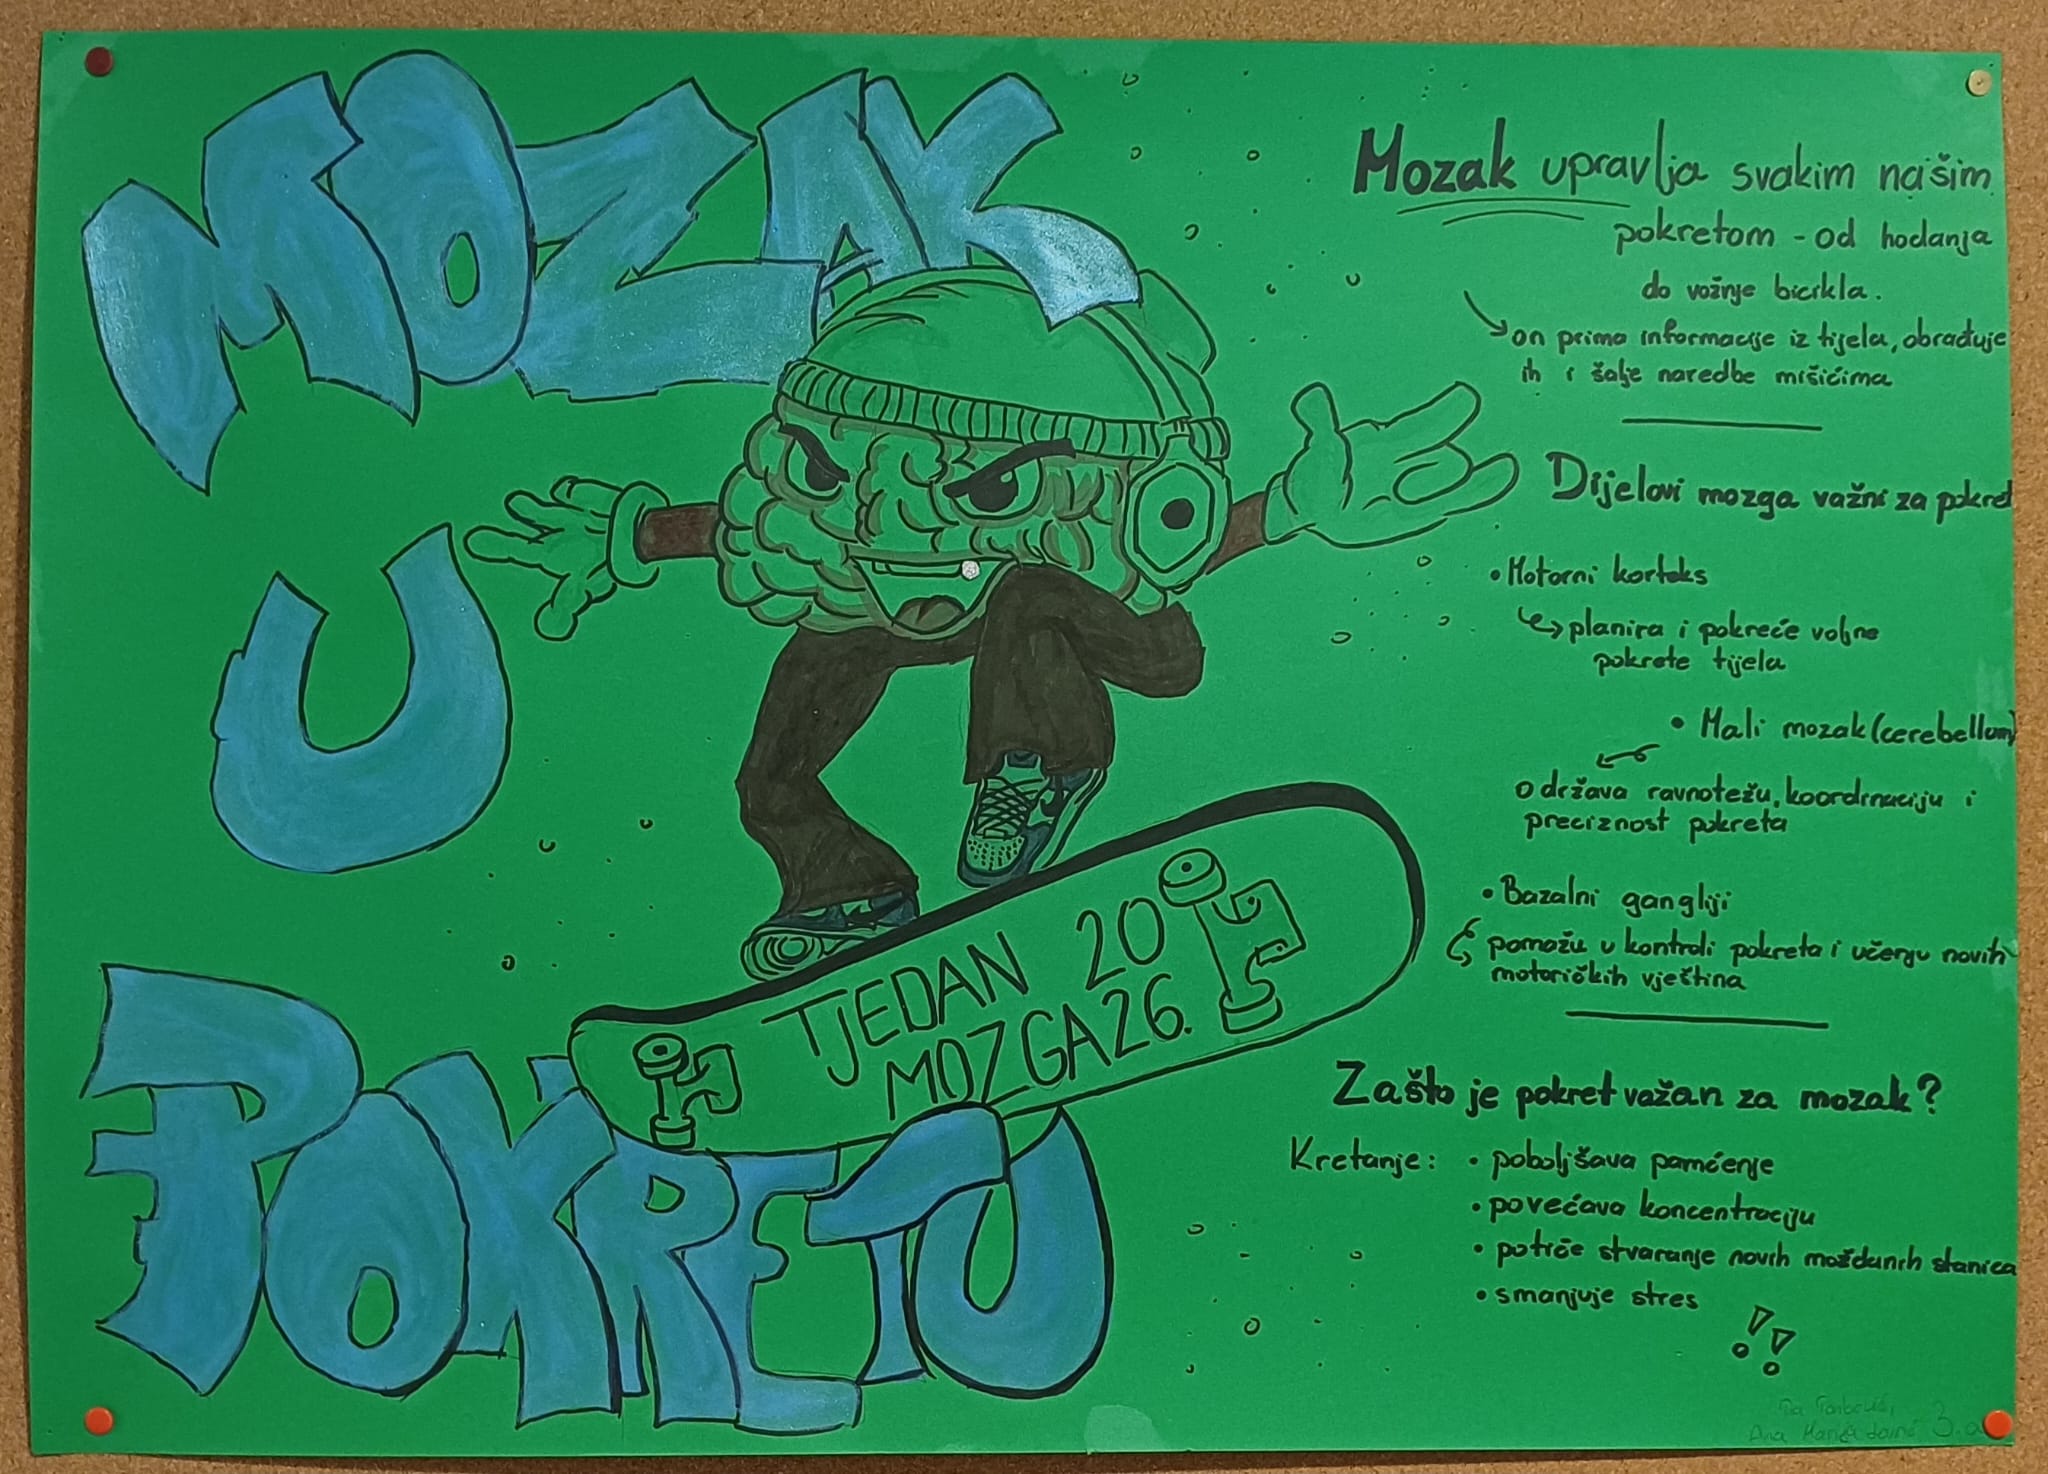 MOZAK
U
POKRETU
TJEDAN 20
MOZGA 26.
Mozak upravlja svakim našim
pokretom - od hodanja
do vožnje bicikla.
on prima informacije iz tijela, obrađuje
ih i šalje naredbe mišićima
Dijelovi mozga važni za pokret
• Motorni korteks
planira i pokreće voljne
pokrete tijela
• Mali mozak (cerebellum)
održava ravnotežu, koordinaciju i
preciznost pokreta
• Bazalni gangliji
pomažu u kontroli pokreta i učenju novih
motoričkih vještina
Zašto je pokret važan za mozak?
Kretanje: • poboljšava pamćenje
• povećava koncentraciju
• potiče stvaranje novih moždanih stanica
• smanjuje stres
!!
Ana 3.a